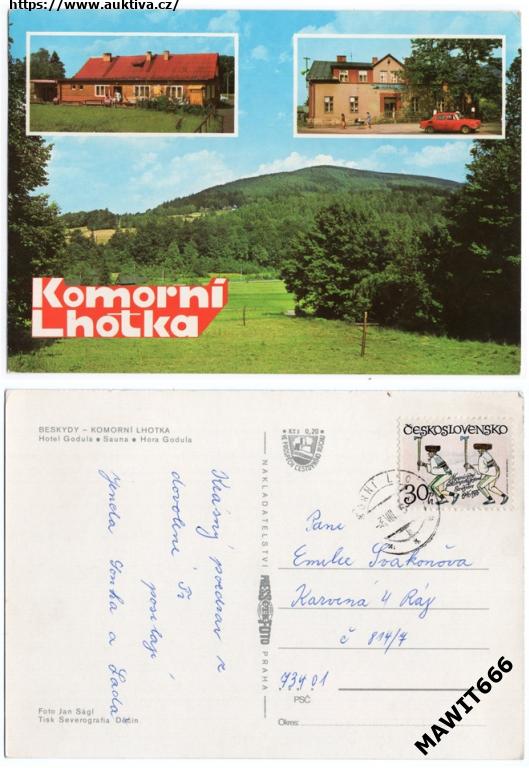 https://www.auktiva.cz/
Komorní
Lhotka
BESKYDY – KOMORNÍ LHOTKA
Hotel Godula • Sauna • Hora Godula
KTS 0,20
VE PROSPĚCH CESTOVNÍHO RUCHU
ČESKOSLOVENSKO
30h
Krásný pozdrav z
dovolené Ti
posílají
a Lada
NAKLADATELSTVÍ
PRESSFOTO
PRAHA
Paní
Emilie Svakonová
Karviná 4 Ráj
č 814/7
734 01
PSČ
Okres:
Foto Jan Ságl
Tisk Severografia Děčín
MAWIT666